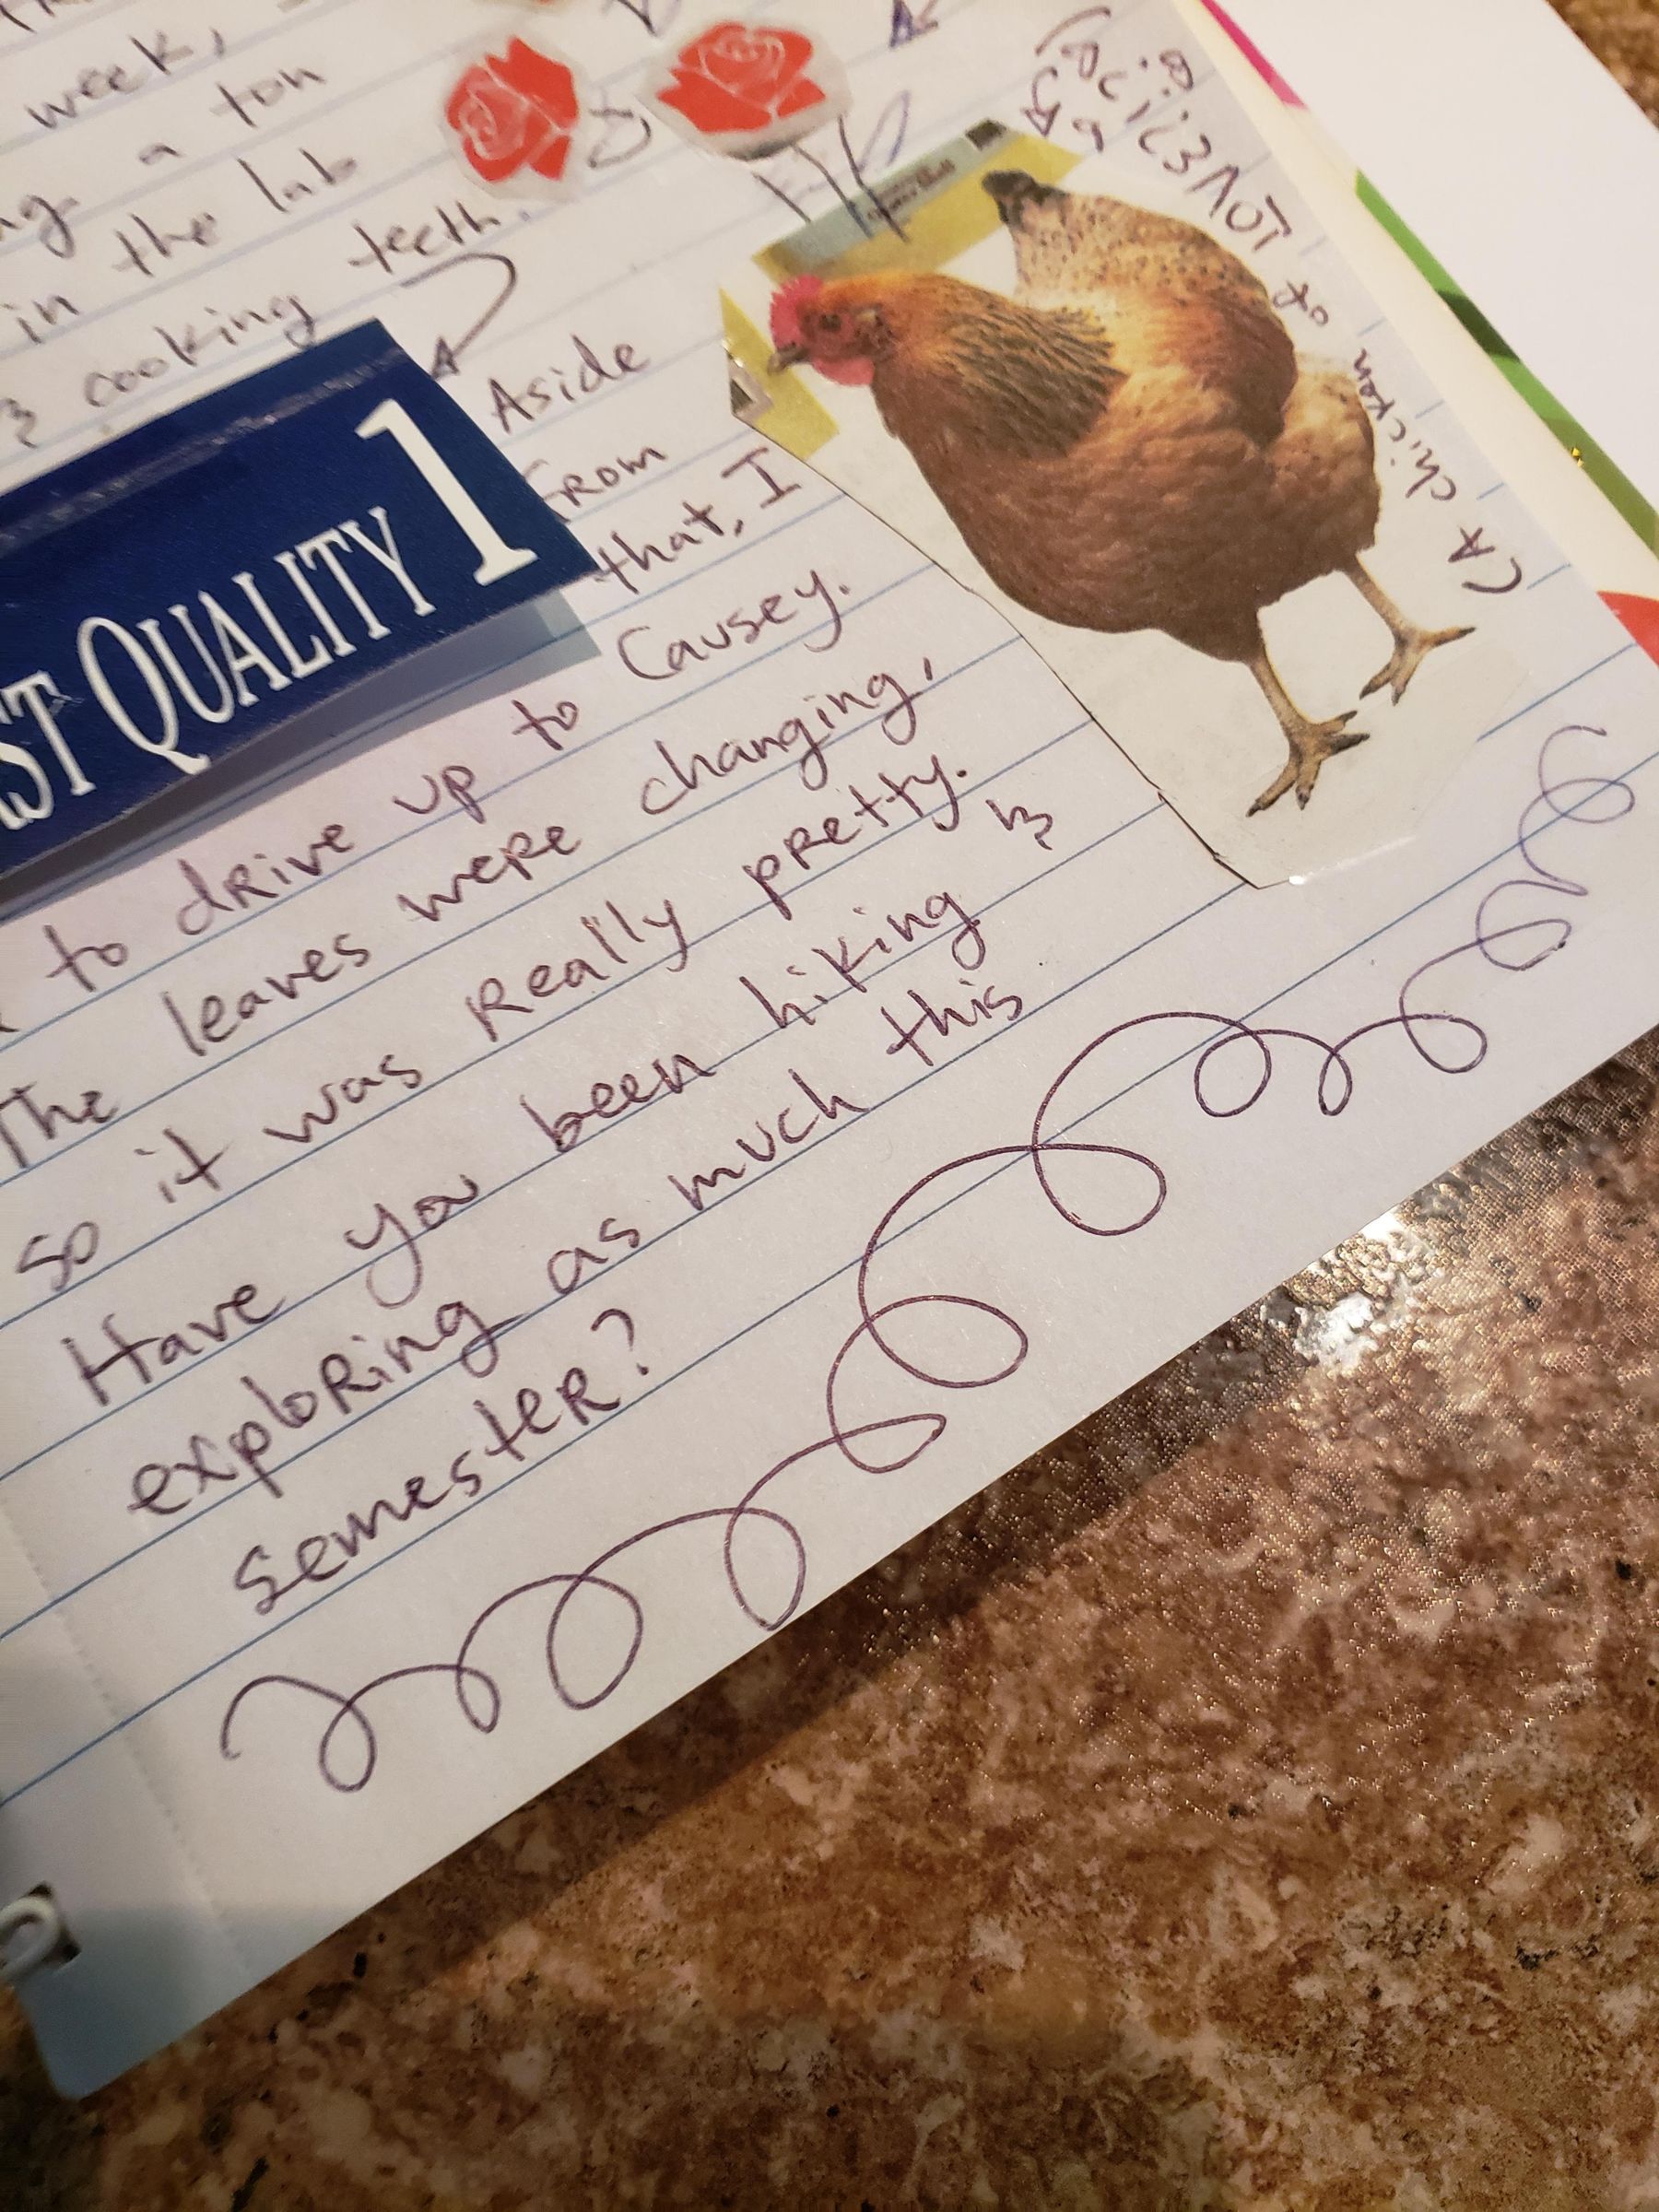 week,
a ton
in the lab
& cooking teeth.
Aside
from
that, I
ST QUALITY 1
to drive up to Causey.
The leaves were changing,
so it was really pretty.
Have you been hiking &
exploring as much this
semester?
(A chicken
of TOVE?!?